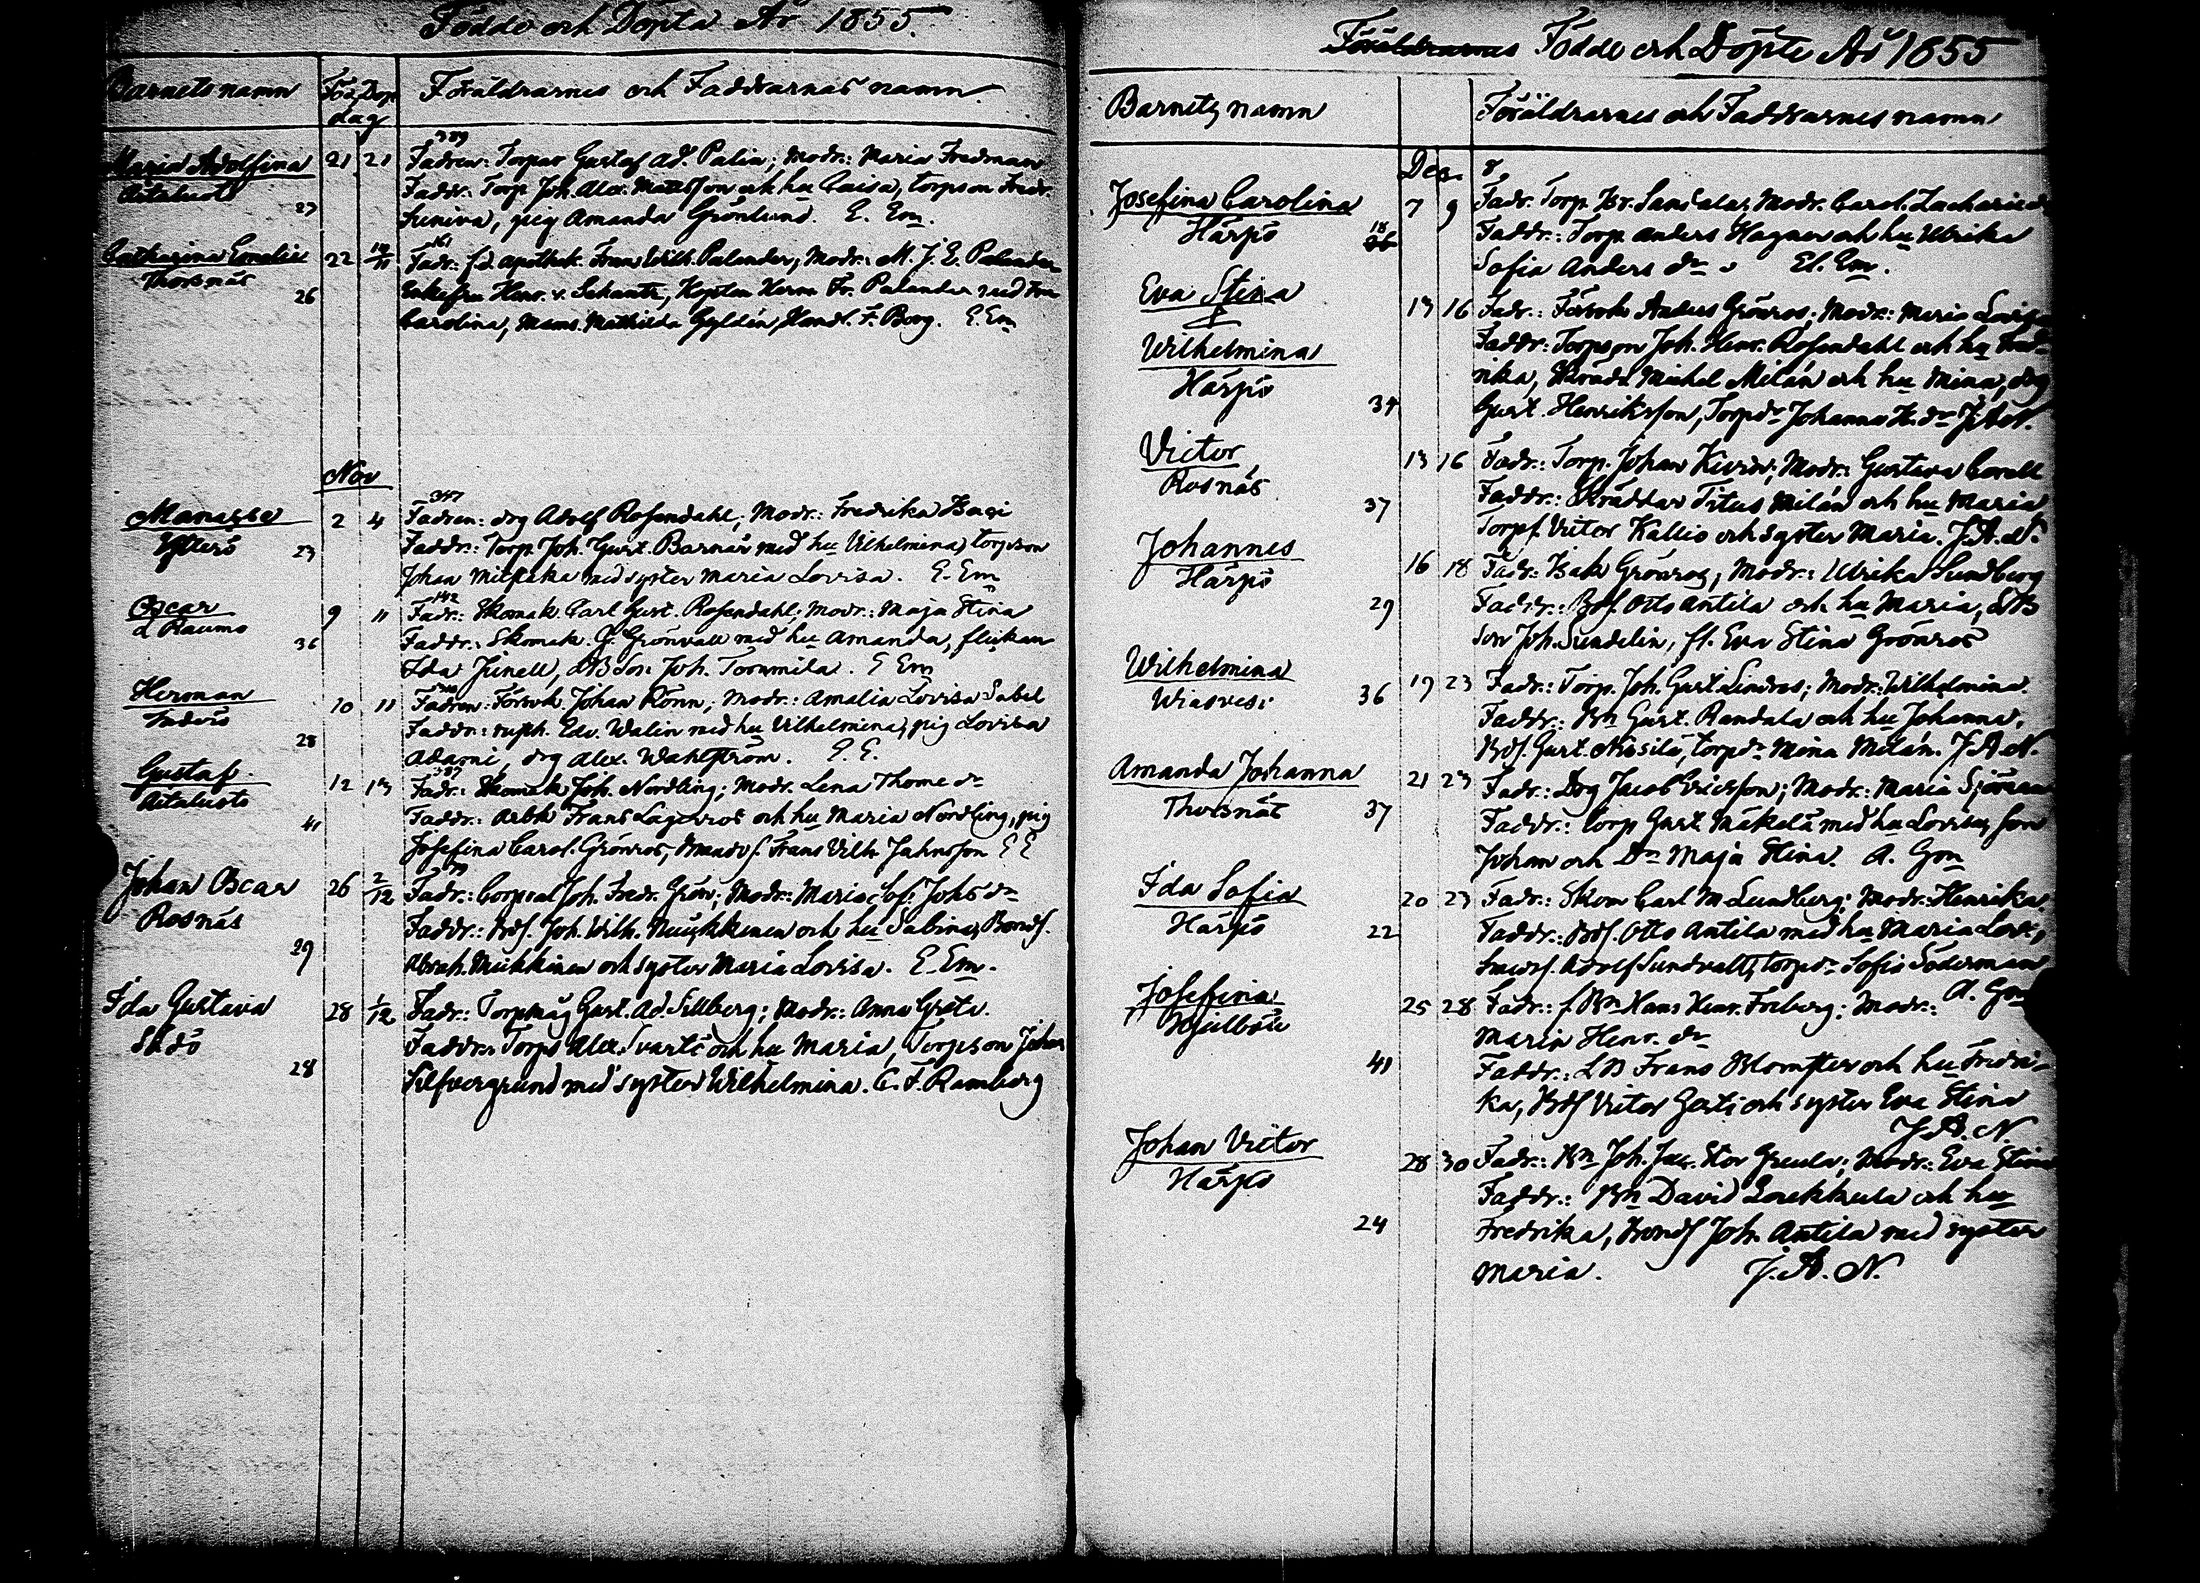 Födde och Döpta År 1855.
Barnets namn
Föd. Döp.
dag
Föräldrarnes och Faddrarnas namn.
Maria Adolfina
21 21
Fadren: Torpar Gustaf Ad. Palin; Modr.: Maria Fredman
Faddr. Torp. Joh. Alex. Mattsson och hu Caisa, torpson Fredr.
27
Suniva, pig Amanda Grönlund. E. Em.
Catharina Emelie
Thorsnäs
26
22 12/11
161
Fadr: f.d. apothek. Frans Wilh. Palander; Modr: M. J. E. Palander
Enkefru Henr. v. Schantz, Kapten Herm Fr. Palander med Fru
Carolina, Mams. Mathilda Gyldén, Handl. F. Borg. E. Em
Nov
Manasse
Ytterö
23
2 4
347
Fadren: drg Adolf Rosendahl; Modr.: Fredrika
Faddr.: Torp. Joh. Gust. Barnär med hu Vilhelmina, torpson
Johan med syster Maria Lovisa. E. Em
Oscar
L Raumo
36
9 11
142
Fadr.: Skomak. Carl Gust. Rosendahl; Modr.: Maja Stina
Faddr.: Skomak. G. Grönvall med hu Amanda, flickan
Ida Junell, LBson Joh. Tornmila. E Em
Herman
Inderö
28
10 11
Fadren: Johan Rönn; Modr.: Amalia Lovisa Sabel
Faddr: Edv. Walin med hu Vilhelmina, pig Lovisa
Adami, drg Alex. Wahlström. E. E.
Gustaf.
41
12 13
Fadr: Skomak Joh. Nordling; Modr. Lena Thome dr
Faddr.: Arbk Frans Lagerros och hu Maria Nordling, pig
Josefina Carol. Grönros, Frans Vilh. Jahnsson E E
Johan Oscar
Rosnäs
29
26 2/12
79
Fadr.: Corporal Joh. Fredr. Grön; Modr: Maria Sof: Johs dr
Faddr.: Bds. Joh. Wilh. och hu Sabina, Bonds.
Abrah. Mickkinen och syster Maria Lovisa. E. Em.
Ida Gustava
28
28 1/12
Fadr.: Torpmåg Gust. Ad. Sillberg; Modr: Anna Greta.
Faddr: Torp Alex. Svarts och hu Maria, Torpson Johan
Silfvergrund med syster Wilhelmina. C. F. Ramberg
Föräldrarnes Födde och Döpte År 1855
Barnets namn
Föräldrarnes och Faddrarnes namn
Dec. 8
Josefina Carolina
Härpö
18
26
7 9
Fadr. Torp. Br. Sandala; Modr. Carol. Zacharied.
Faddr.: Torp. Anders Hagner och hu Ulrika
Sofia Anders dr El. Em.
Eva Stina
Wilhelmina
Härpö
34
13 16
Fadr.: Anders Grönros; Modr: Maria Lovisa
Faddr: Torpson Joh. Henr. Rosendahl och hu Fred-
rika, Skrädd. Michel Melán och hu Mina, drg
Gust. Henriksson, Torpdr Johanna H. dr J. A. N.
Victor
Rosnäs
37
13 16
Fadr.: Torp. Johan Kivin; Modr: Gustava Corell
Faddr.: Skräddar Titus Milán och hu Maria
Torpf. Victor Kallio och syster Maria. J. A. N.
Johannes
Härpö
29
16 18
Fadr: Isak Grönros; Modr: Ulrika Sundberg
Faddr.: Bds. Otto Antila och hu Maria, LB
son Joh. Sundelin, fl. Eva Stina Grönros
Wilhelmina
Wiasvesi
36
19 23
Fadr.: Torp. Joh. Gust. Lindros; Modr: Wilhelmina
Faddr.: Bn Gust. Randala och hu Johanna,
Bds. Gust. Nissilä, torpdr Mina Milán. J A N.
Amanda Johanna
Thorsnäs
37
21 23
Fadr.: Drg Jacob Ericsson; Modr.: Maria Sjöman
Faddr.: Torp Gust. Mäkelä med hu Lovisa, son
Johan och Dr Maja Stina. A. Gon
Ida Sofia
Härpö
22
20 23
Fadr.: Skom Carl M. Lundberg; Modr: Henrika
Faddr.: Bds. Otto Antila med hu Maria Lov.,
Smeds. Adolf Sundvall, torpdr Sofia Söderman
A. Gon
Josefina
41
25 28
Fadr.: f. Bn Hans Henr. Friberg; Modr:
Maria Henr. dr
Faddr.: LB Frans Blomster och hu Fredri-
ka, Bds Victor Gerts och syster Eva Stina
J. A. N.
Johan Victor
Härpö
24
28 30
Fadr.: Bn Joh. Jac. Stor Greula; Modr: Eva Stina
Faddr.: Bn David Loukkula och hu
Fredrika, Bonds Joh. Antila med syster
Maria. J. A. N.